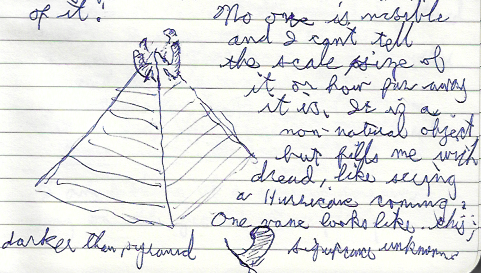 of it."
No one is visible
and I cant tell
the scale size of
it or how far away
it is. It is a
non-natural object,
but fills me with
dread, like seeing
a Hurricane coming.
One vane looks like this;
darker than pyramid
significance unknown